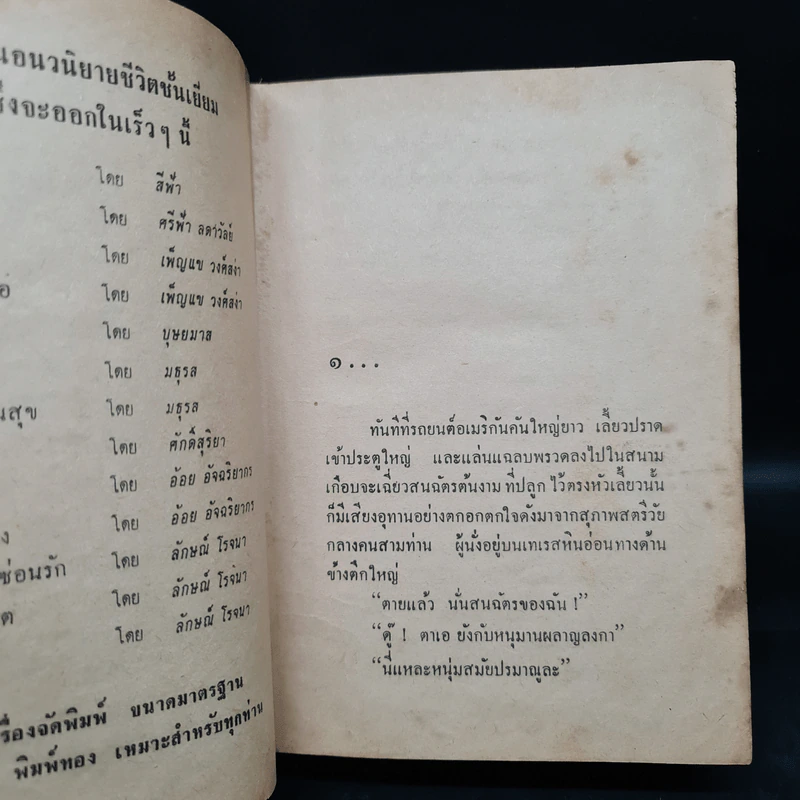 นอนวนิยายชีวิตชั้นเยี่ยม
ซึ่งจะออกในเร็วๆ นี้
โดย สีฟ้า
โดย ศรีฟ้า ลดาวัลย์
โดย เพ็ญแข วงศ์สง่า
อ โดย เพ็ญแข วงศ์สง่า
โดย บุษยมาส
โดย มธุรส
นสุข โดย มธุรส
โดย ศักดิ์สุริยา
โดย อ้อย อัจฉริยากร
ง โดย อ้อย อัจฉริยากร
ซ่อนรัก โดย ลักษณ์ โรจนา
ต โดย ลักษณ์ โรจนา
โดย ลักษณ์ โรจนา
รื่องจัดพิมพ์ ขนาดมาตรฐาน
พิมพ์ทอง เหมาะสำหรับทุกท่าน
๑...
ทันทีที่รถยนต์อเมริกันคันใหญ่ยาว เลี้ยวปราด
เข้าประตูใหญ่ และแล่นแฉลบพรวดลงไปในสนาม
เกือบจะเฉี่ยวสนฉัตรต้นงาม ที่ปลูกไว้ตรงหัวเลี้ยวนั้น
ก็มีเสียงอุทานอย่างตกอกตกใจดังมาจากสุภาพสตรีวัย
กลางคนสามท่าน ผู้นั่งอยู่บนเทเรสหินอ่อนทางด้าน
ข้างตึกใหญ่
“ตายแล้ว นั่นสนฉัตรของฉัน !”
“ดู๊ ! ตาเอ ยังกับหนุมานผลาญลงกา”
“นี่แหละหนุ่มสมัยปรมาณูละ”